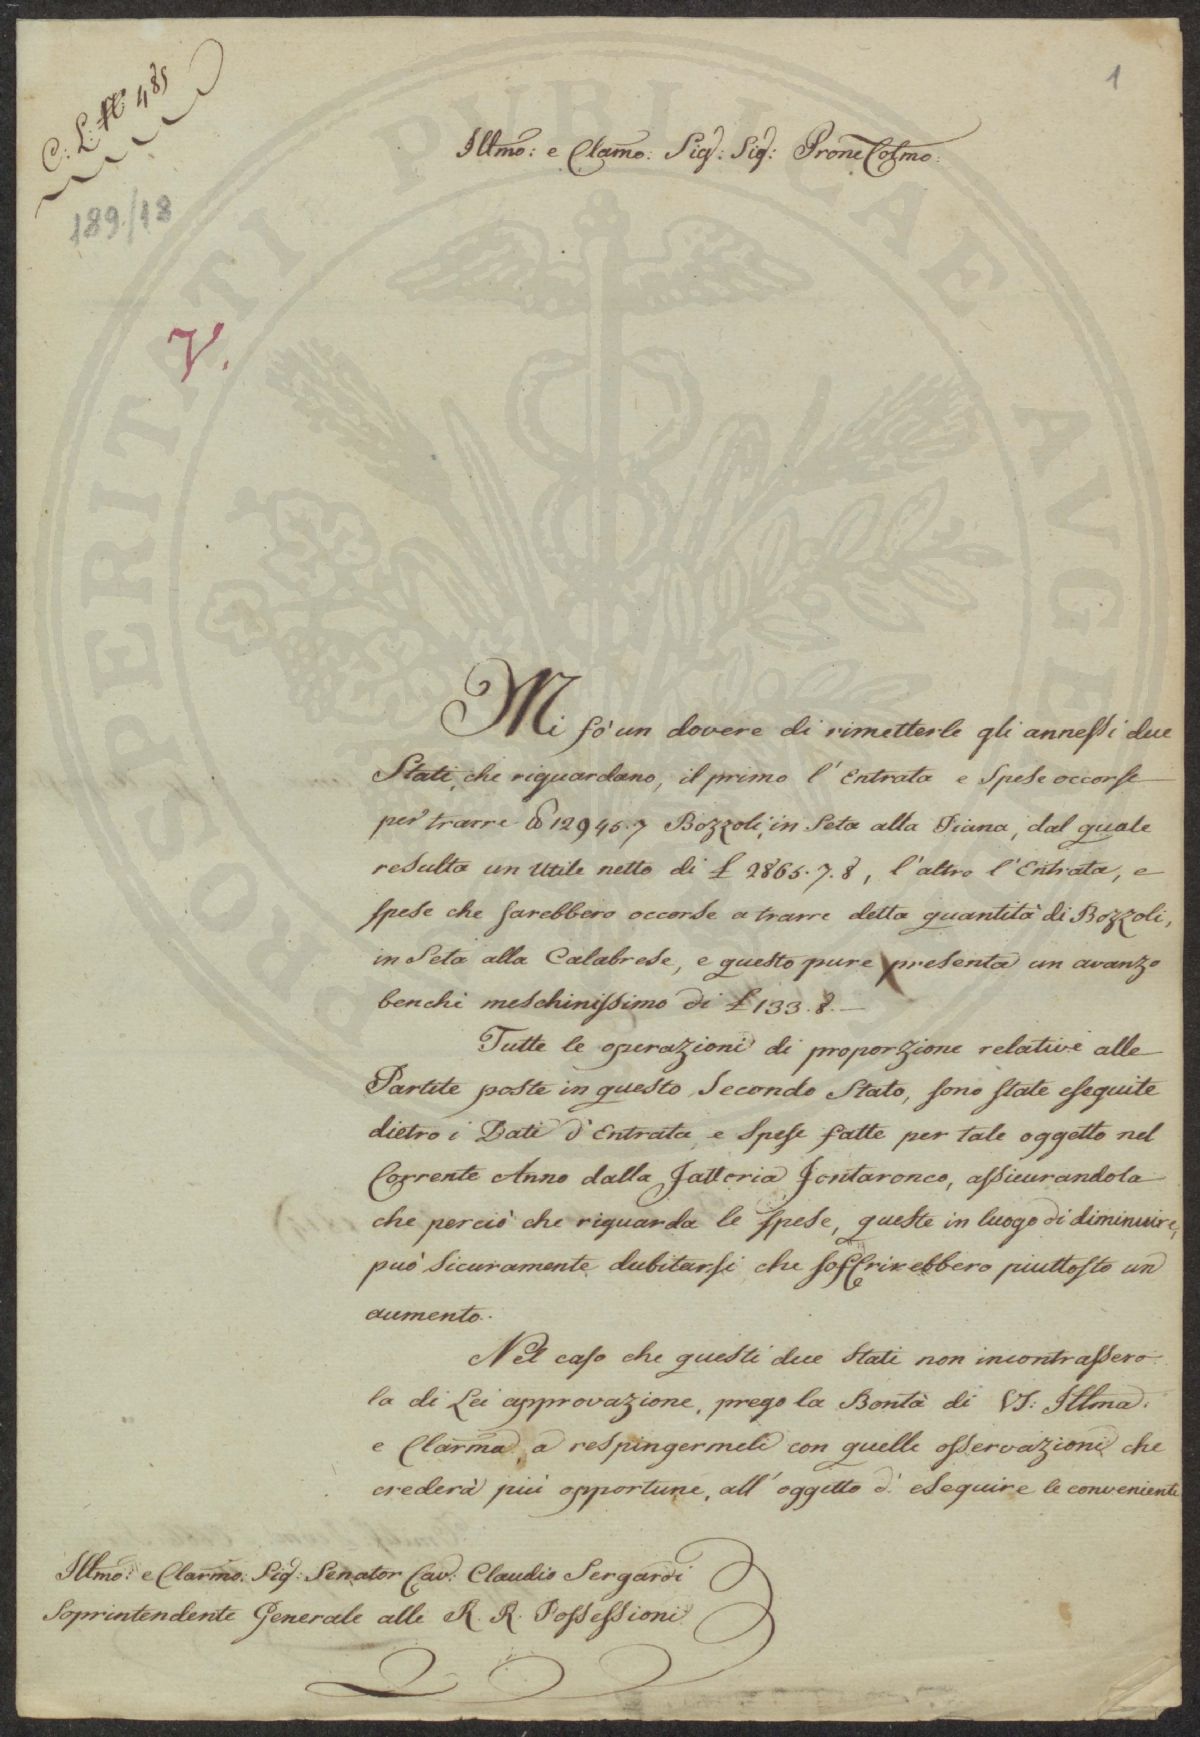 C: L: N° 485
1
189/18
V.
Illmo: e Clarmo: Sig: Sig: Prone Colmo:
Mi fò un dovere di rimetterle gli annessi due
Stati, che riguardano, il primo l'Entrata e Spese occorse
per trarre 12945.7 Bozzoli, in Seta alla Piana, dal quale
resulta un Utile netto di £ 2865.7.8, l'altro l'Entrata, e
spese che sarebbero occorse a trarre detta quantità di Bozzoli,
in Seta alla Calabrese, e questo pure presenta un avanzo
benchè meschinissimo di £ 133.8.—
Tutte le operazioni di proporzione relative alle
Partite poste in questo Secondo Stato, sono state eseguite
dietro i Dati d'Entrata e Spese fatte per tale oggetto nel
Corrente Anno dalla Fattoria Fontaronco, assicurandola
che perciò che riguarda le spese, queste in luogo di diminuire,
può sicuramente dubitarsi che soffrirebbero piuttosto un
aumento.
Nel caso che questi due Stati non incontrassero
la di Lei approvazione, prego la Bontà di VS: Illma:
e Clarma, a respingermeli con quelle osservazioni che
crederà più opportune, all'oggetto d'eseguire le conveniente
Illmo: e Clarmo: Sig: Senator Cav: Claudio Sergardi
Soprintendente Generale alle R. R. Possessioni
PROSPERITATI PUBLICAE AVGENDAE